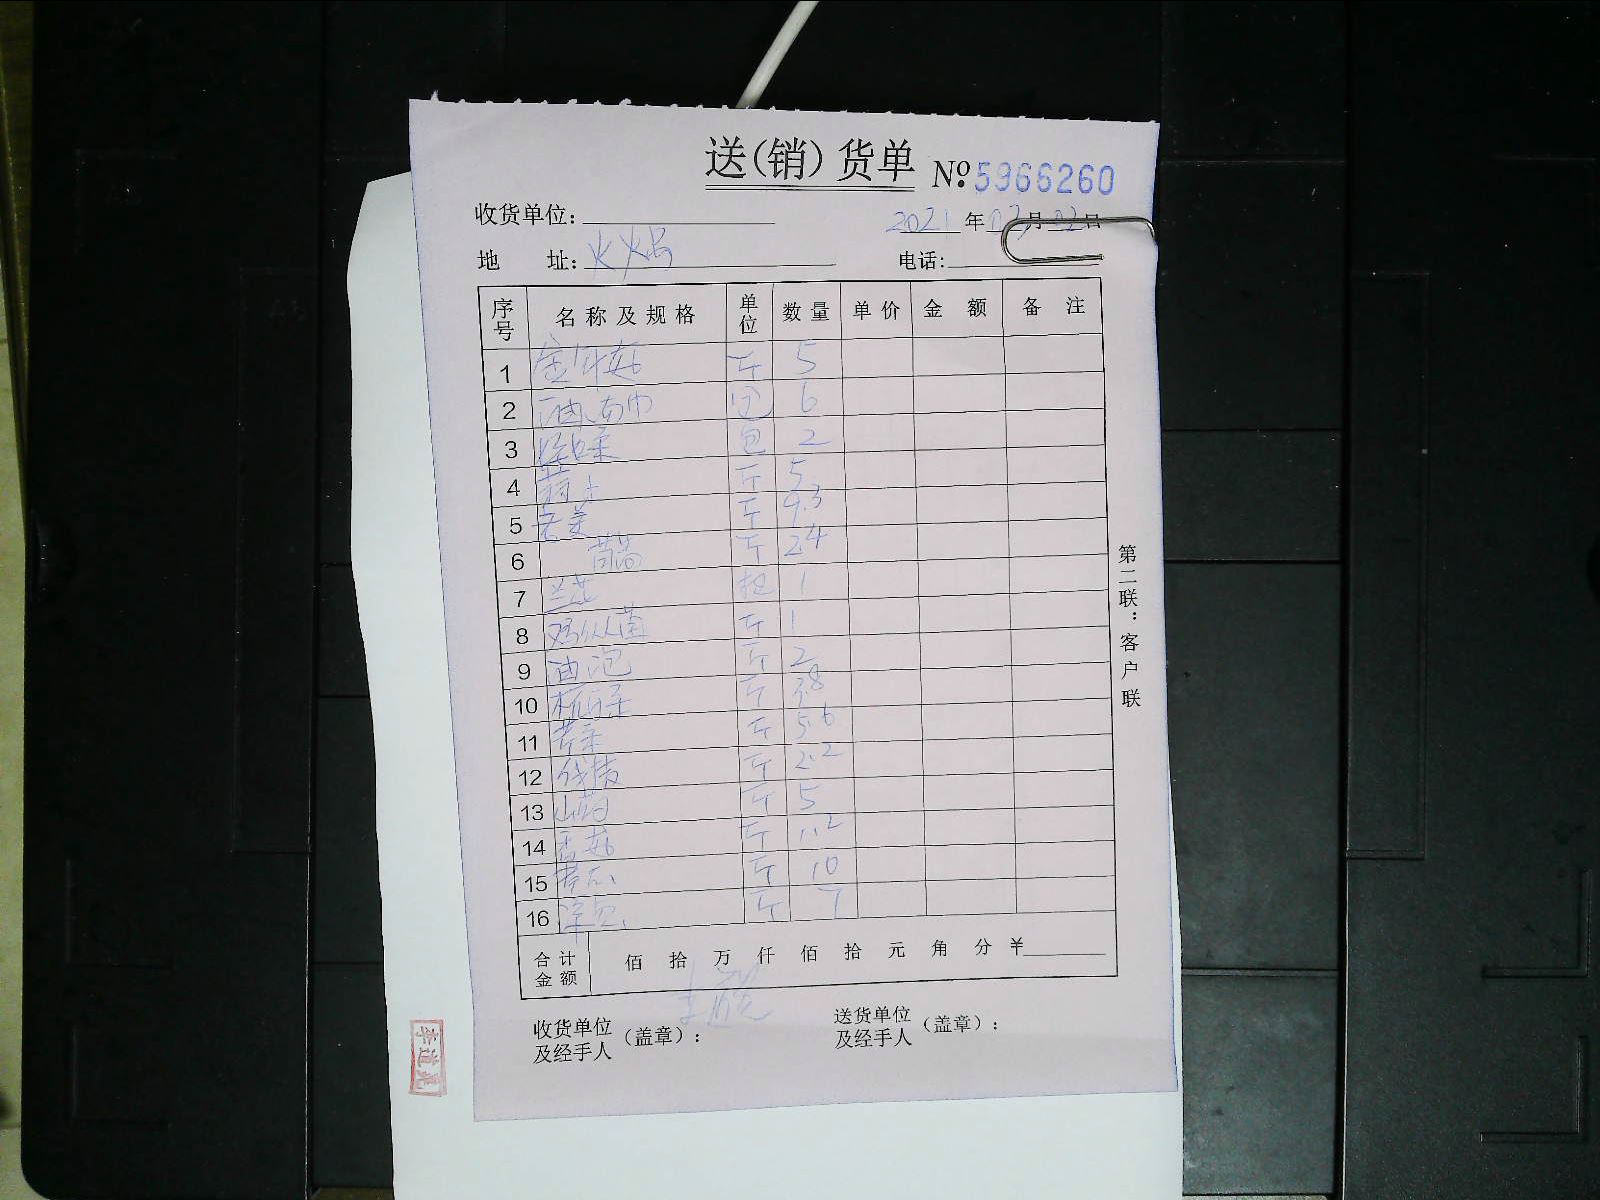 送(销)货单 Nº 5966260
收货单位:
2021年03月02日
地 址: 火火焗
电话:
序号 名称及规格 单位 数量 单价 金额 备注
1 金针菇 斤 5
2 油面巾 包 6
3 包 2
4 斤 5
5 斤 9.3
6 茼蒿 斤 24
7 兰花 把 1
8 鸡从菌 斤 1
9 油泡 斤 2
10 杭白菜 斤 3.8
11 芹菜 斤 5.6
12 线椒 斤 2.2
13 山药 斤 5
14 香菇 斤 11.2
15 斤 10
16 洋 斤 7
合计金额 佰 拾 万 仟 佰 拾 元 角 分 ¥
收货单位及经手人(盖章):
送货单位及经手人(盖章):
第二联:客户联